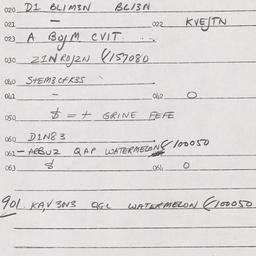 020 D1 BLIM3N BL13N
021 — 022 KVE/TN
023 A BOJM CVIT.
030 Z1NR0/ZN (/157080
040 STEM3CFR3S
041 - 042 0
050 $ = + GRINE FEFE
060 D1N83
061 - ARBUZ QAP WATERMELONS (/100050
063 $ 064 0
901. KAV3N3 OGL WATERMELON (/100050